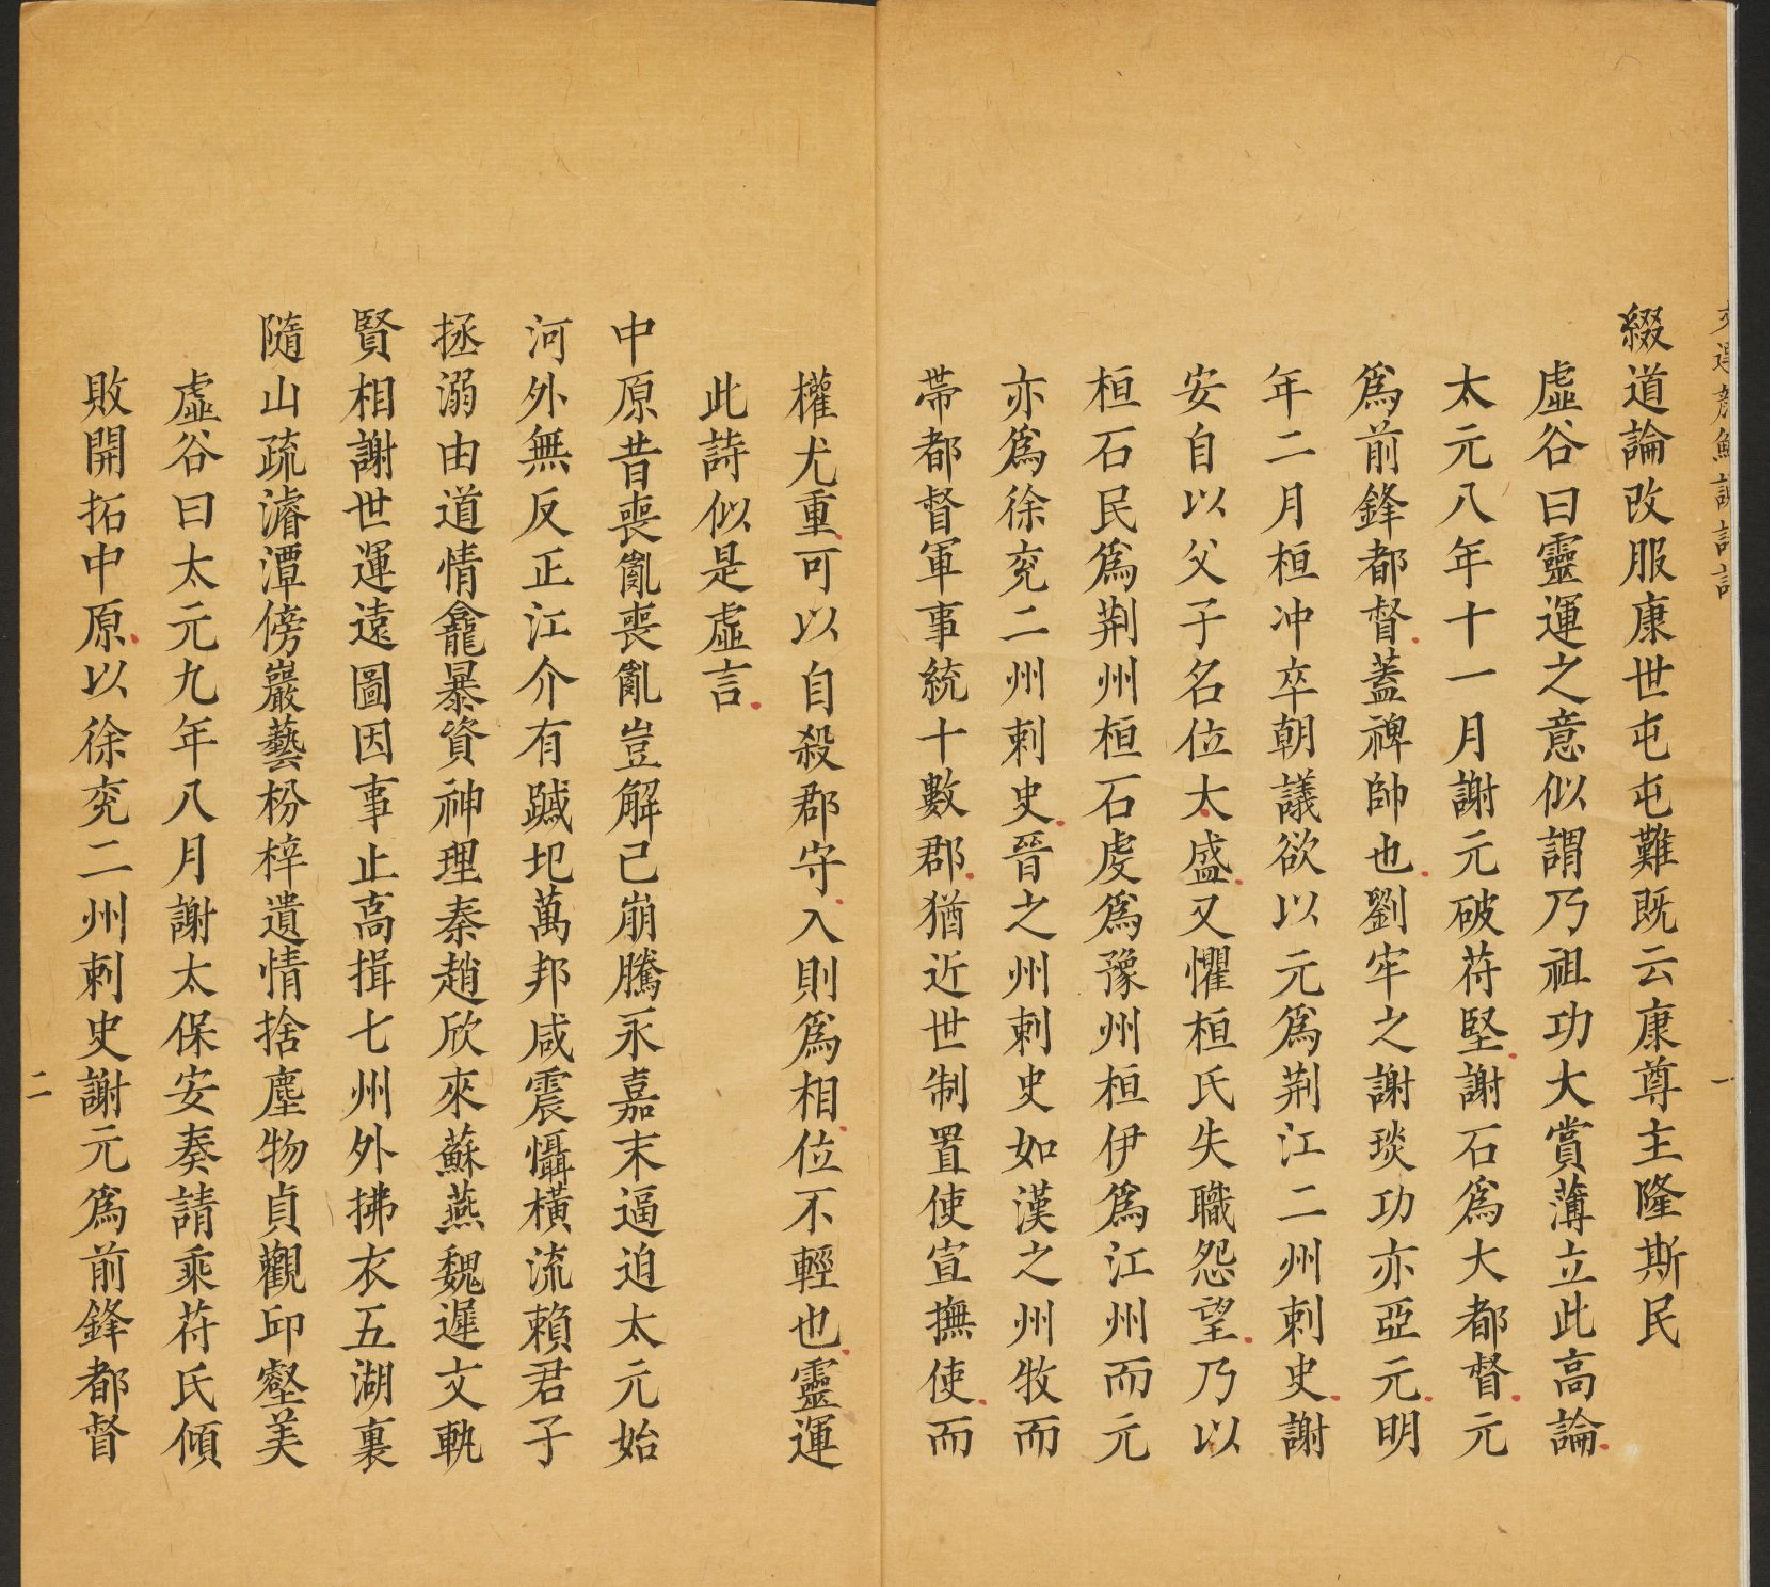 文選顏鮑謝詩評
一
綴道論改服康世屯屯難既云康尊主隆斯民
虛谷曰靈運之意似謂乃祖功大賞薄立此高論
太元八年十一月謝元破苻堅謝石爲大都督元
爲前鋒都督蓋裨帥也劉牢之謝琰功亦亞元明
年二月桓冲卒朝議欲以元爲荆江二州刺史謝
安自以父子名位太盛又懼桓氏失職怨望乃以
桓石民爲荆州桓石虔爲豫州桓伊爲江州而元
亦爲徐兖二州刺史晉之州刺史如漢之州牧而
帶都督軍事統十數郡猶近世制置使宣撫使而
權尤重可以自殺郡守入則爲相位不輕也靈運
此詩似是虛言
中原昔喪亂喪亂豈解己崩騰永嘉末逼迫太元始
河外無反正江介有蹴圮萬邦咸震懾橫流賴君子
拯溺由道情龕暴資神理秦趙欣來蘇燕魏遲文軌
賢相謝世運遠圖因事止高揖七州外拂衣五湖裏
隨山疏濬潭傍巖藝枌梓遺情捨塵物貞觀邱壑美
虛谷曰太元九年八月謝太保安奏請乘苻氏傾
敗開拓中原以徐兖二州刺史謝元爲前鋒都督
二